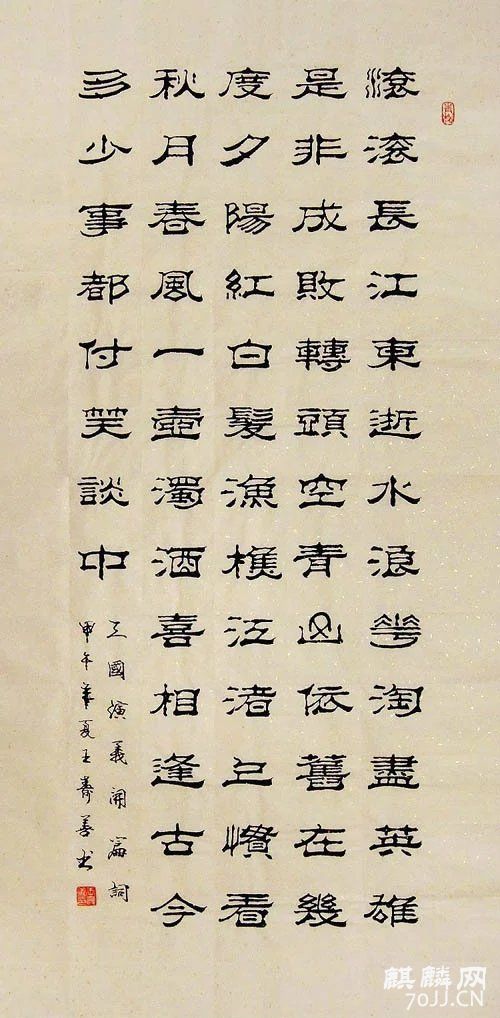 滾滾長江東逝水浪花淘盡英雄
是非成敗轉頭空青山依舊在幾
度夕陽紅白髮漁樵江渚上慣看
秋月春風一壺濁酒喜相逢古今
多少事都付笑談中
三國演義開篇詞
甲午年夏王壽善书
麒麟网
70JJ.CN